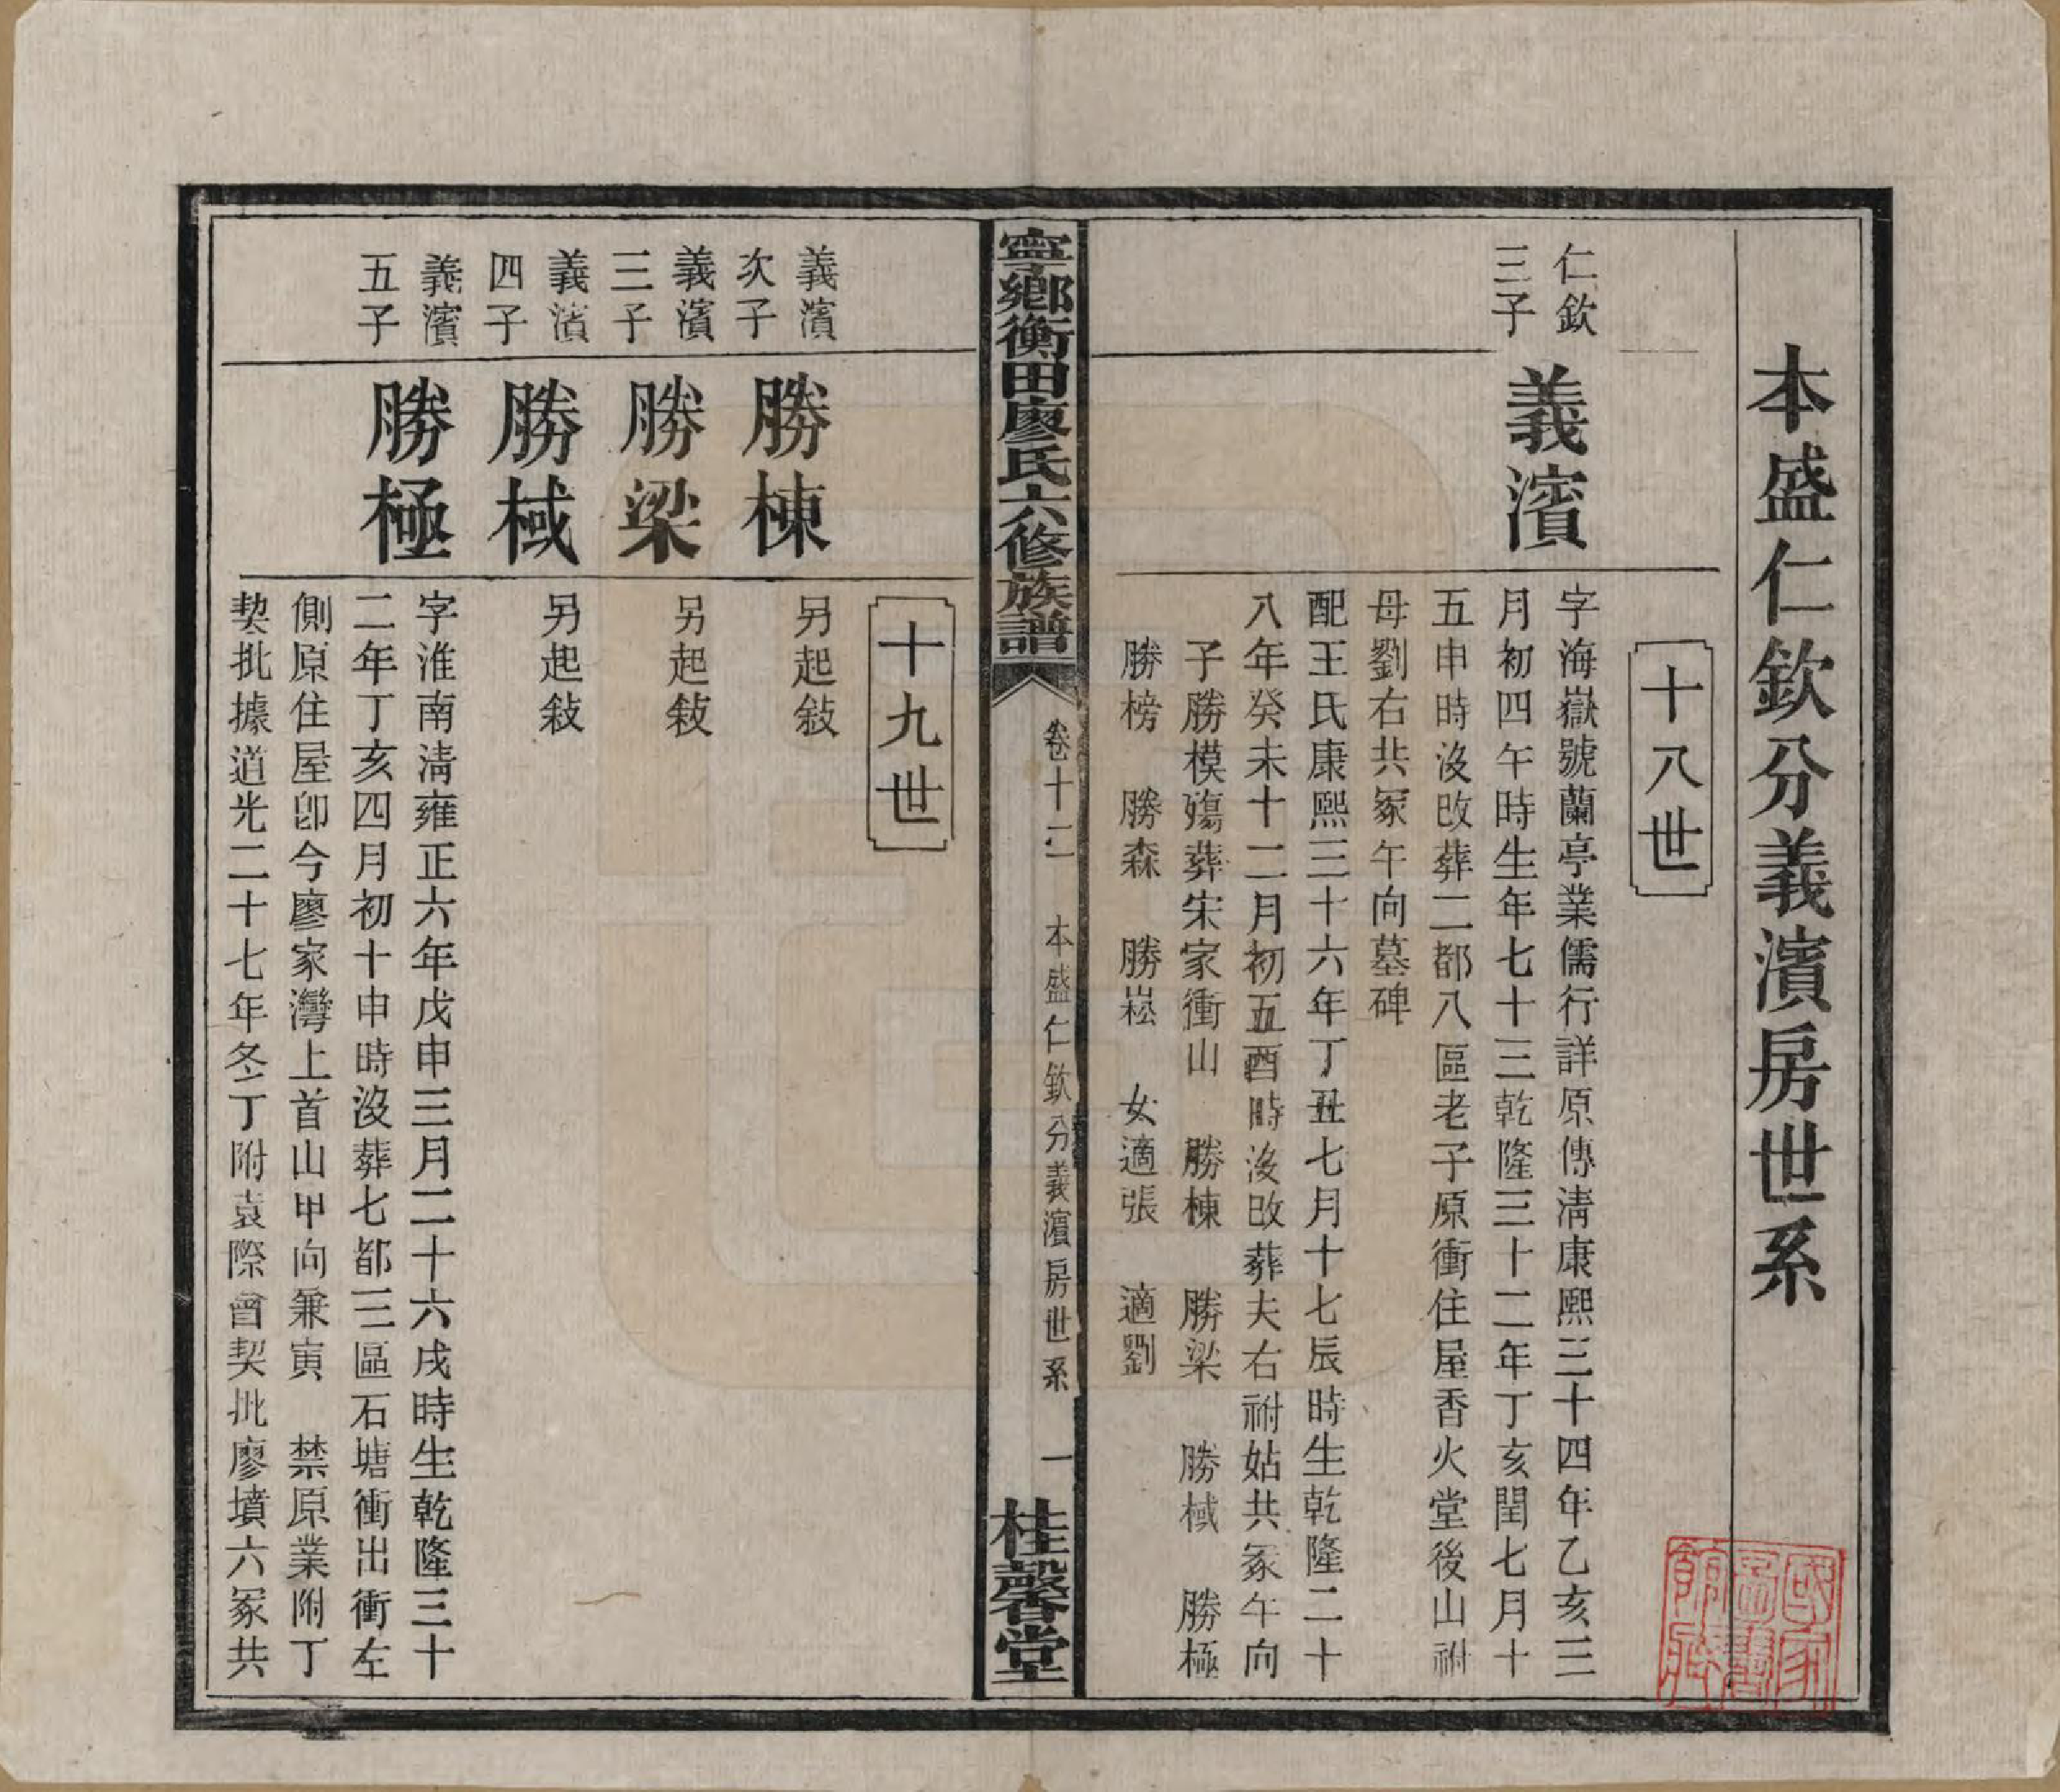 本盛仁欽分義濱房世系
十八世
仁欽
三子
義濱
字海嶽號蘭亭業儒行詳原傳淸康熙三十四年乙亥三
月初四午時生年七十三乾隆三十二年丁亥閏七月十
五申時沒改葬二都八區老子原衝住屋香火堂後山祔
母劉右共冢午向墓碑
配王氏康熙三十六年丁丑七月十七辰時生乾隆二十
八年癸未十二月初五酉時沒改葬夫右祔姑共冢午向
子勝模殤葬宋家衝山 勝棟 勝梁 勝棫 勝極
勝榜 勝森 勝崧 女適張 適劉
寧鄉衡田廖氏六修族譜
卷十二 本盛仁欽分義濱房世系 一
桂馨堂
十九世
義濱
次子
勝棟
另起敍
義濱
三子
勝梁
另起敍
義濱
四子
勝棫
另起敍
義濱
五子
勝極
字淮南淸雍正六年戊申三月二十六戌時生乾隆三十
二年丁亥四月初十申時沒葬七都三區石塘衝出衝左
側原住屋卽今廖家灣上首山甲向兼寅 禁原業附丁
契批據道光二十七年冬丁附袁際曾契批廖墳六冢共
國家
圖書
館藏